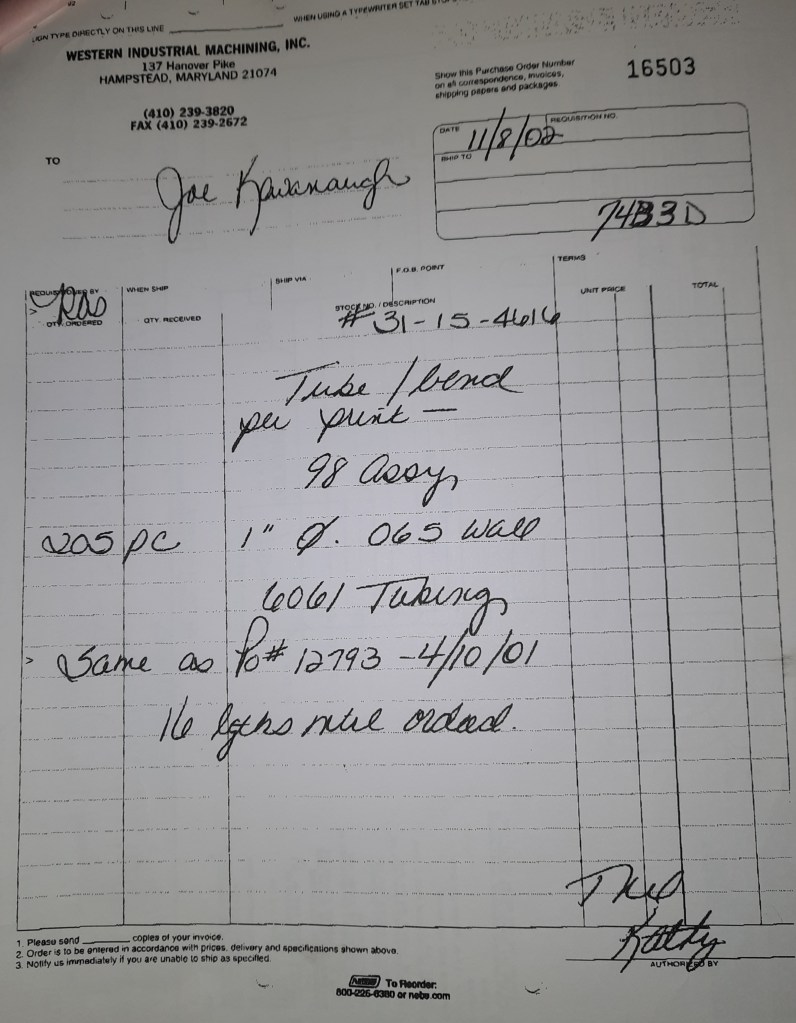 ION TYPE DIRECTLY ON THIS LINE
WHEN USING A TYPEWRITER SET TAB STO
WESTERN INDUSTRIAL MACHINING, INC.
137 Hanover Pike
HAMPSTEAD, MARYLAND 21074
(410) 239-3820
FAX (410) 239-2672
Show this Purchase Order Number
on all correspondence, invoices,
shipping papers and packages.
16503
DATE 11/8/02 REQUISITION NO.
SHIP TO
74B3D
TO
Joe Kavanaugh
BY WHEN SHIP SHIP VIA F.O.B. POINT TERMS
QTY. ORDERED QTY. RECEIVED STOCK NO. / DESCRIPTION UNIT PRICE TOTAL
# 31-15-4616
Tube / bend
per print —
98 Assy
205 pc 1" Ø. 065 Wall
6061 Tubing
> Same as Po# 12793 - 4/10/01
16 lgths
Kathy
AUTHORIZED BY
1. Please send ______ copies of your invoice.
2. Order is to be entered in accordance with prices, delivery and specifications shown above.
3. Notify us immediately if you are unable to ship as specified.
NEBS To Reorder:
800-225-6380 or nebs.com